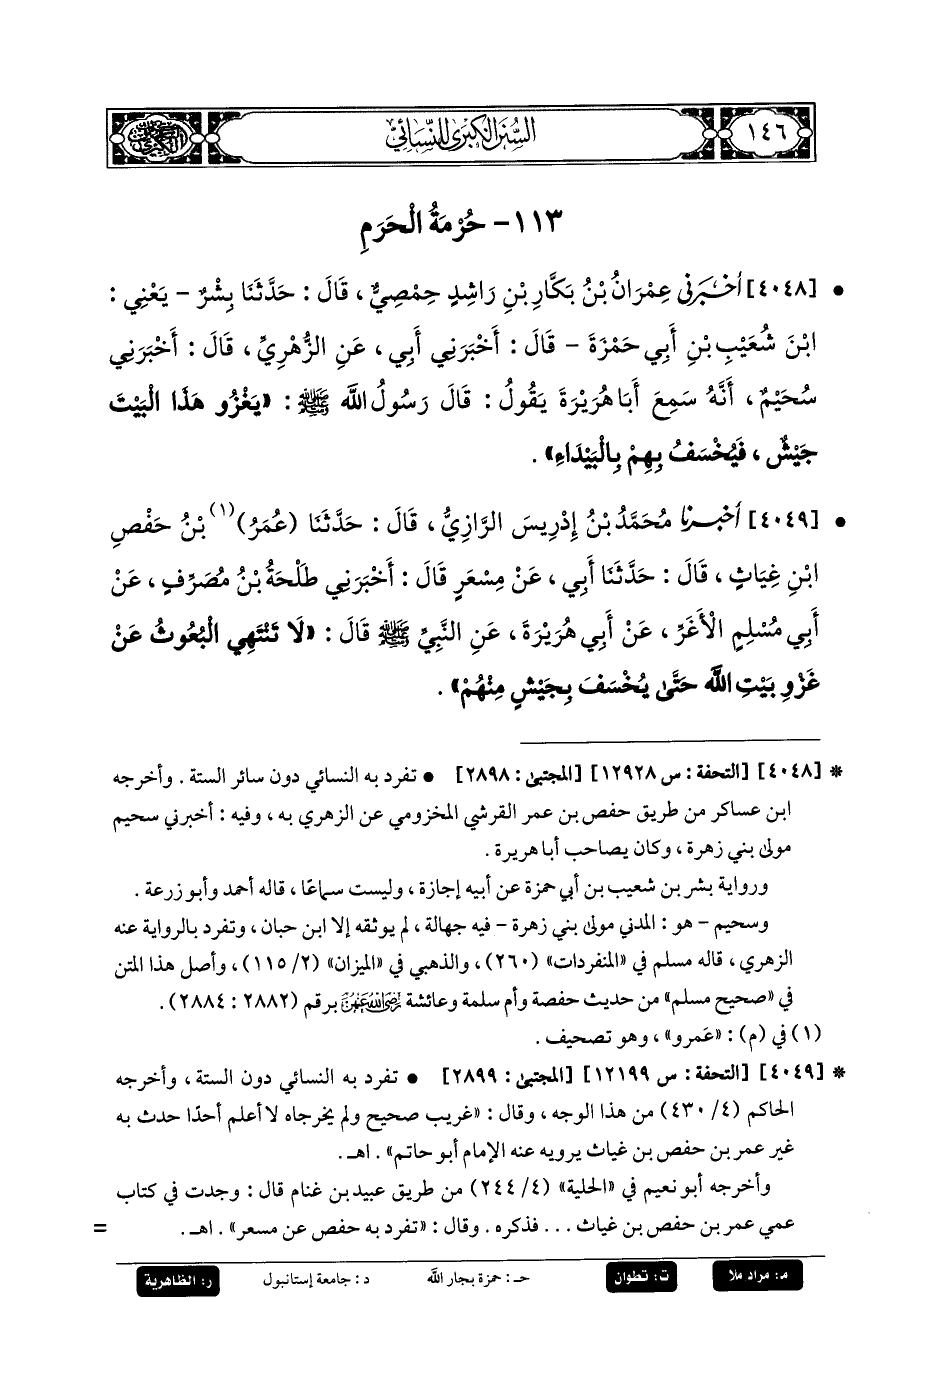 ١٤٦
السنن الكبرى للنسائي
١١٣- حُرْمَةُ الْحَرَمِ
• [٤٠٤٨] أخبرني عِمْرَانُ بْنُ بَكَّارِ بْنِ رَاشِدٍ حِمْصِيٌّ ، قَالَ : حَدَّثَنَا بِشْرٌ - يَعْنِي :
ابْنَ شُعَيْبِ بْنِ أَبِي حَمْزَةَ - قَالَ : أَخْبَرَنِي أَبِي ، عَنِ الزُّهْرِيِّ ، قَالَ : أَخْبَرَنِي
سُحَيْمٌ ، أَنَّهُ سَمِعَ أَبَا هُرَيْرَةَ يَقُولُ : قَالَ رَسُولُ اللَّه ﷺ : «يَغْزُو هَذَا الْبَيْتَ
جَيْشٌ ، فَيُخْسَفُ بِهِمْ بِالْبَيْدَاءِ» .
• [٤٠٤٩] أخبرنا مُحَمَّدُ بْنُ إِدْرِيسَ الرَّازِيُّ ، قَالَ : حَدَّثَنَا (عُمَرُ)(١) بْنُ حَفْصِ
ابْنِ غِيَاثٍ ، قَالَ : حَدَّثَنَا أَبِي ، عَنْ مِسْعَرٍ قَالَ : أَخْبَرَنِي طَلْحَةُ بْنُ مُصَرِّفٍ ، عَنْ
أَبِي مُسْلِمٍ الْأَغَرِّ ، عَنْ أَبِي هُرَيْرَةَ ، عَنِ النَّبِيِّ ﷺ قَالَ : «لَا تَنْتَهِي الْبُعُوثُ عَنْ
غَزْوِ بَيْتِ اللَّه حَتَّى يُخْسَفَ بِجَيْشٍ مِنْهُمْ» .
* [٤٠٤٨] [التحفة : س ١٢٩٢٨] [المجتبى : ٢٨٩٨] • تفرد به النسائي دون سائر الستة . وأخرجه
ابن عساكر من طريق حفص بن عمر القرشي المخزومي عن الزهري به ، وفيه : أخبرني سحيم
مولى بني زهرة ، وكان يصاحب أبا هريرة .
ورواية بشر بن شعيب بن أبي حمزة عن أبيه إجازة ، وليست سماعًا ، قاله أحمد وأبو زرعة .
وسحيم - هو : المدني مولى بني زهرة - فيه جهالة ، لم يوثقه إلا ابن حبان ، وتفرد بالرواية عنه
الزهري ، قاله مسلم في «المنفردات» (٢٦٠) ، والذهبي في «الميزان» (٢/ ١١٥) ، وأصل هذا المتن
في «صحيح مسلم» من حديث حفصة وأم سلمة وعائشة رضي الله عنهن برقم (٢٨٨٢ : ٢٨٨٤) .
(١) في (م) : «عَمرو» ، وهو تصحيف .
* [٤٠٤٩] [التحفة : س ١٢١٩٩] [المجتبى : ٢٨٩٩] • تفرد به النسائي دون الستة ، وأخرجه
الحاكم (٤/ ٤٣٠) من هذا الوجه ، وقال : «غريب صحيح ولم يخرجاه لا أعلم أحدًا حدث به
غير عمر بن حفص بن غياث يرويه عنه الإمام أبو حاتم» . اهـ .
وأخرجه أبو نعيم في «الحلية» (٤/ ٢٤٤) من طريق عبيد بن غنام قال : وجدت في كتاب
عمي عمر بن حفص بن غياث ... فذكره . وقال : «تفرد به حفص عن مسعر» . اهـ . =
م: مراد ملا ت: تطوان حـ: حمزة بجار الله د: جامعة إستانبول ر: الظاهرية